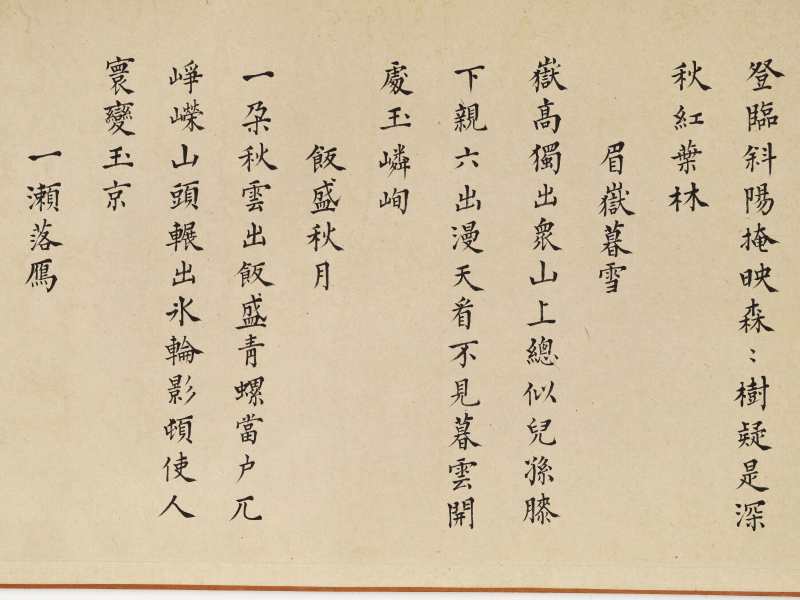 登臨斜陽掩映森〻樹疑是深
秋紅葉林
眉嶽暮雪
嶽高獨出衆山上總似兒孫膝
下親六出漫天看不見暮雲開
處玉嶙峋
飯盛秋月
一朶秋雲出飯盛青螺當户兀
崢嶸山頭輾出氷輪影頓使人
寰變玉京
一瀬落鴈